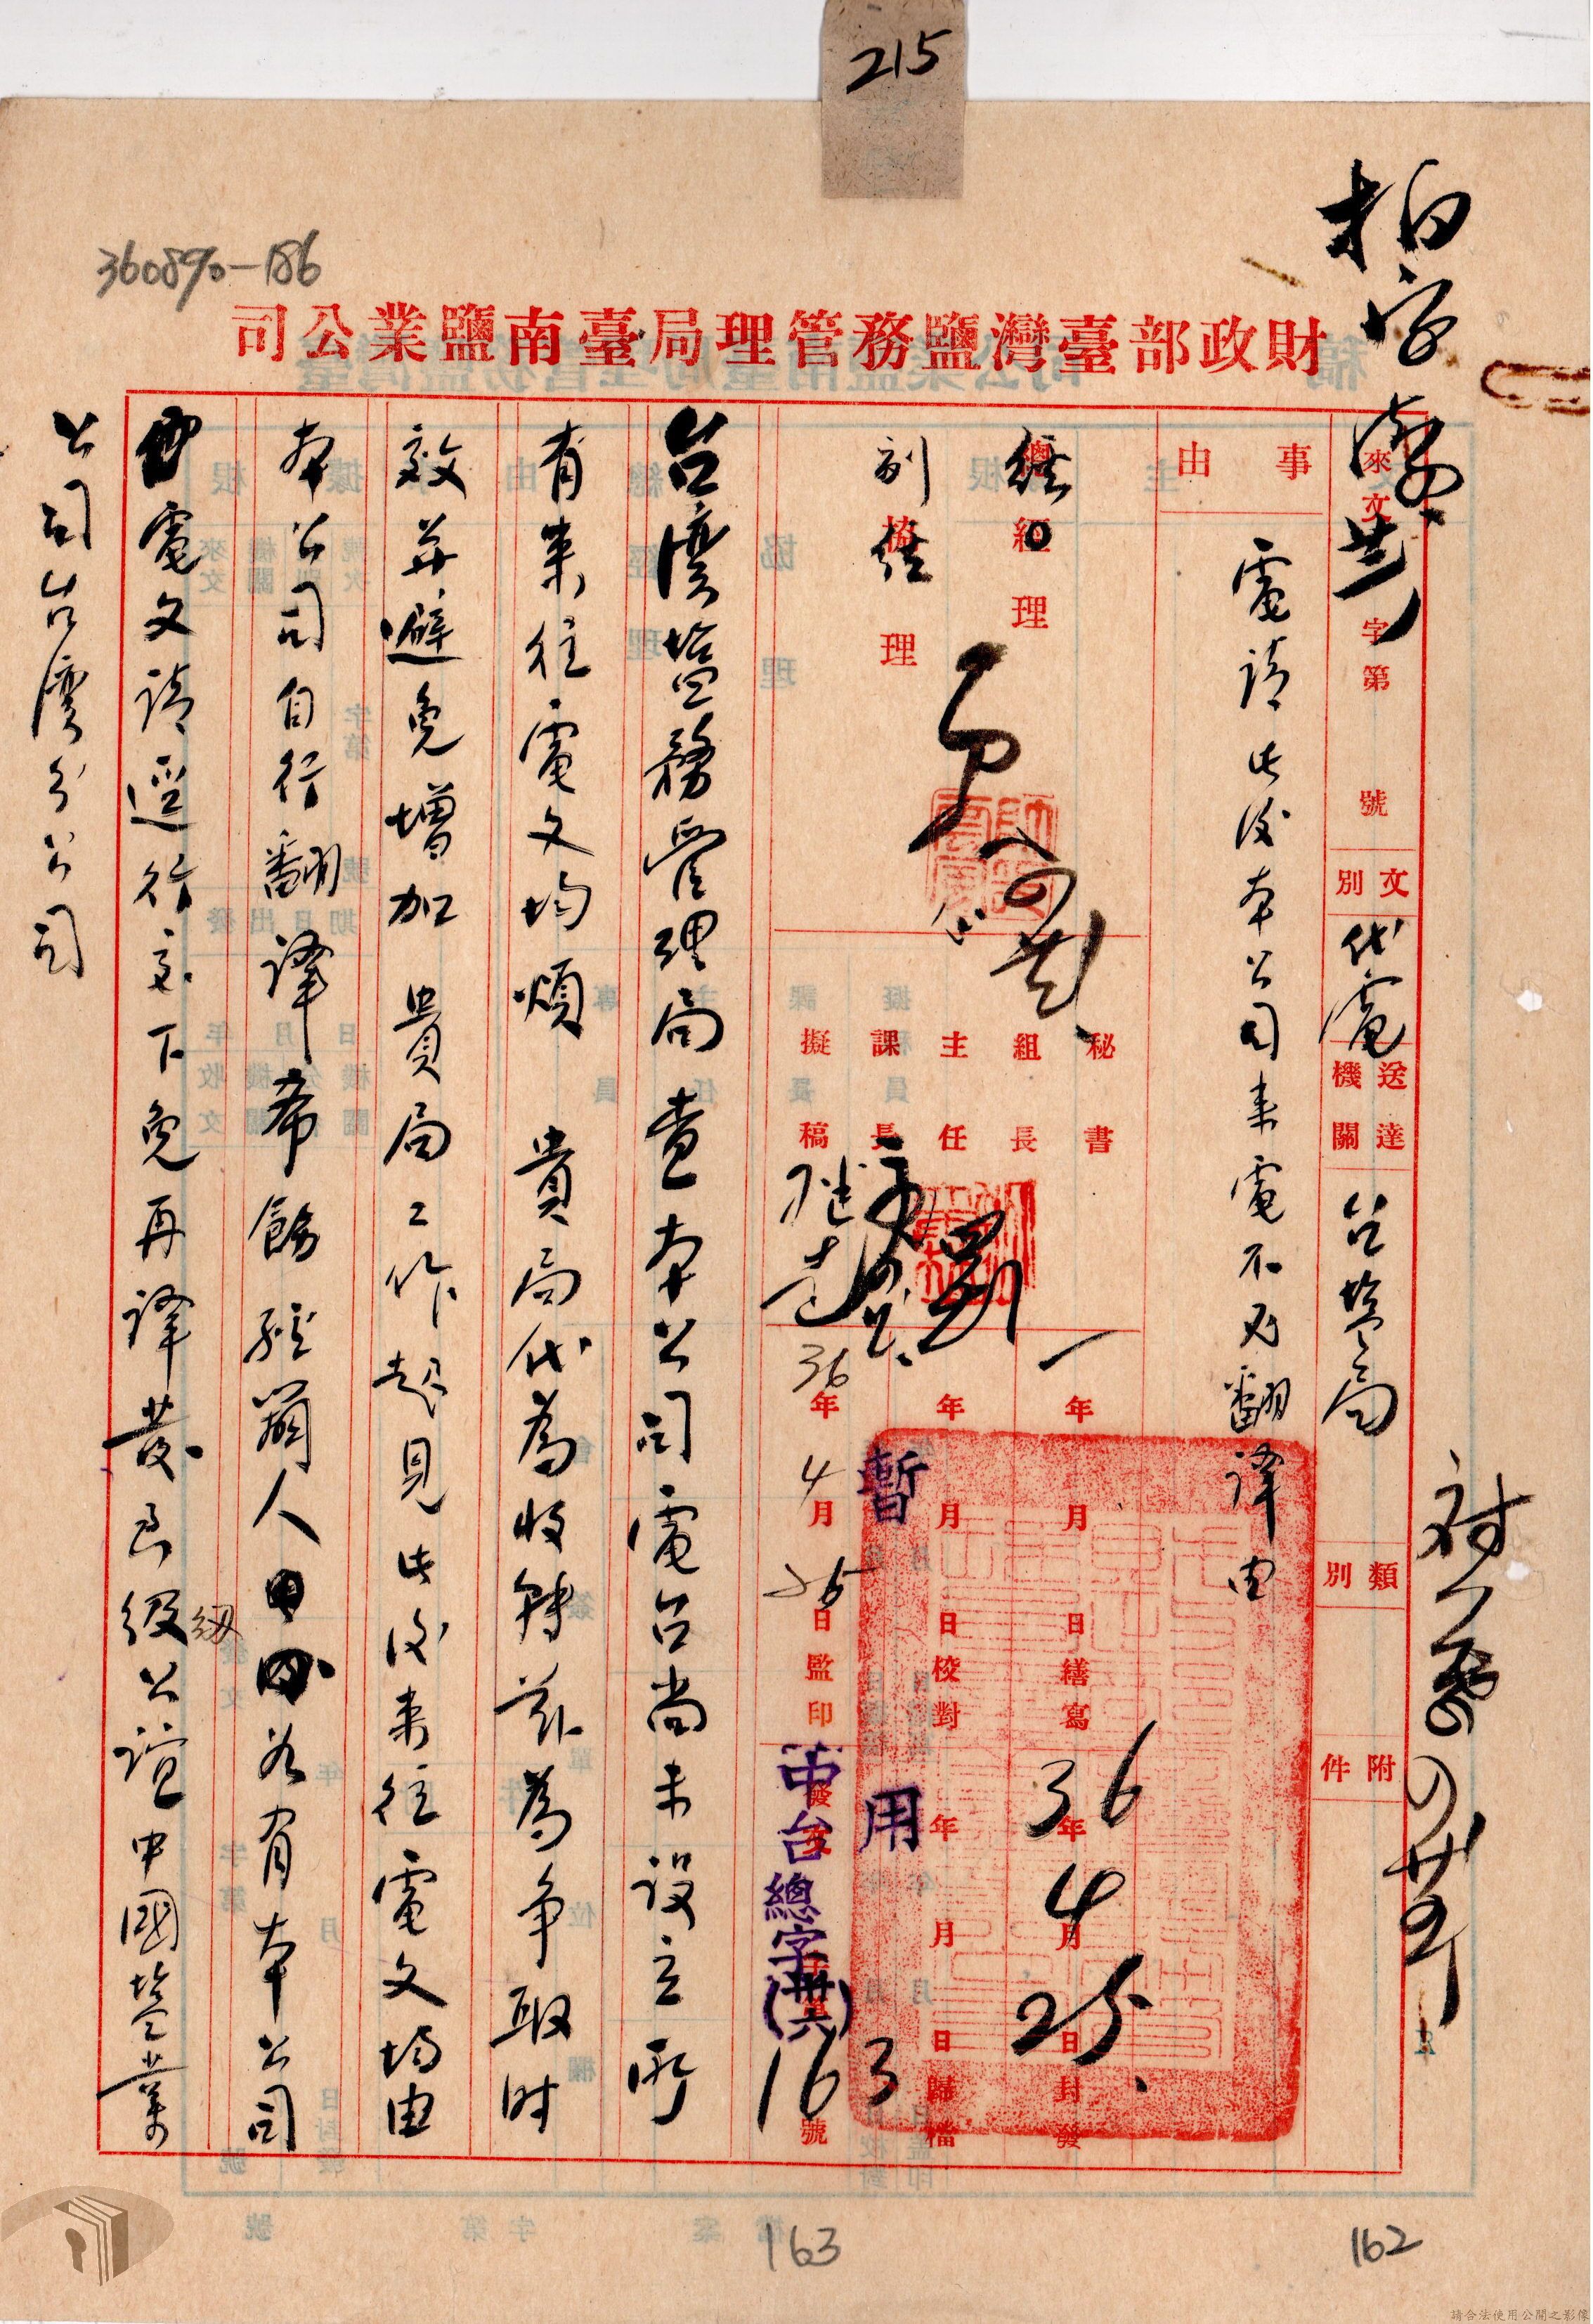 215
360890-186
財政部臺灣鹽務管理局臺南鹽業公司
來文 字第 號
文別 代電
送達機關 台鹽局
類別
附件
事由
電請此後本公司來電不必翻譯由
總經理
協理
副 經
秘書
組長
主任
課長
擬稿
36年4月25日監印
年月日校對
年月日繕寫
36年4月25日封發
年月日歸檔
發文
暫用
中台總字(卅六)163號
台灣塩務管理局查本公司電台尚未設立所
有來往電文均煩 貴局代為收轉茲為爭取時
效並避免增加 貴局工作起見此後來往電文均由
本公司自行翻譯希飭經辦人 如有本公司
電文請逕行交下免再譯發以級公誼中國塩業
紉
公司台灣分公司
163
162
請合法使用公開之影像